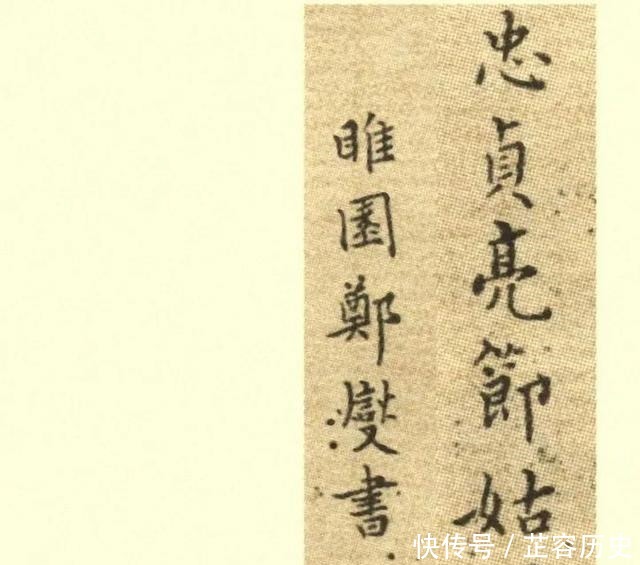 忠貞亮節姑
睢園鄭燮書
快传号 / 芷容历史